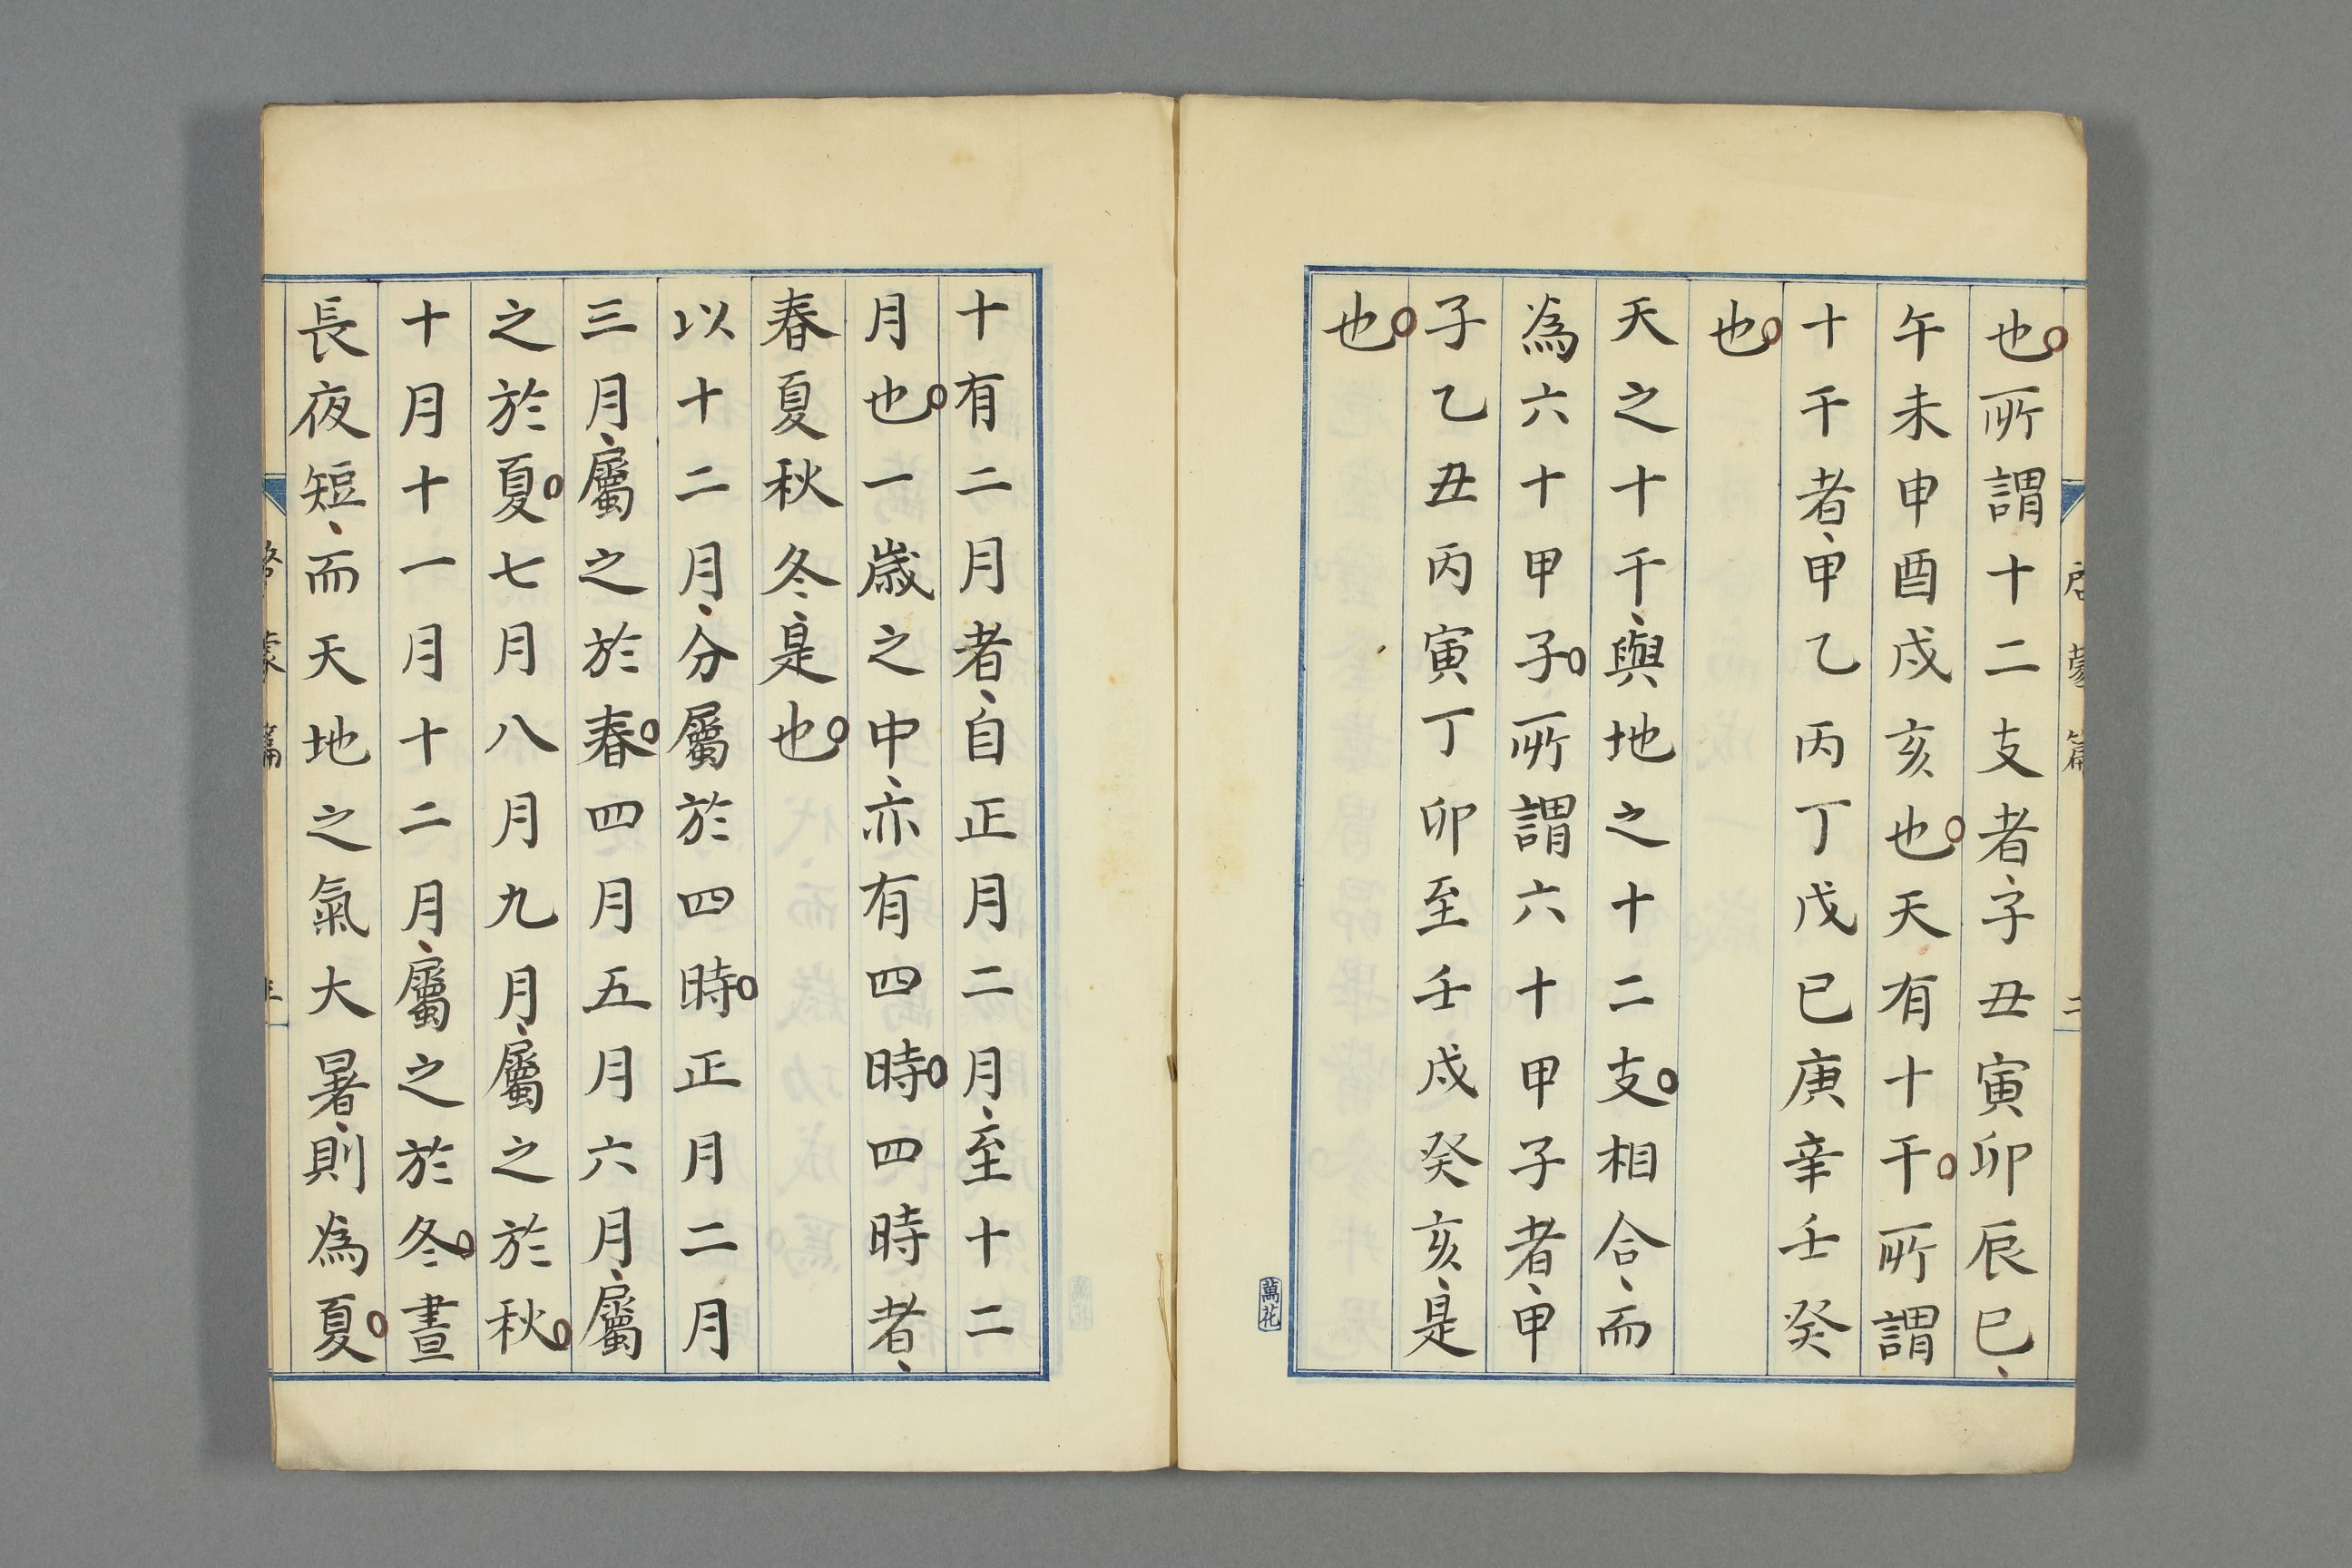 也。所謂十二支者、子丑寅卯辰巳、
午未申酉戌亥也。天有十干。所謂
十干者、甲乙丙丁戊己庚辛壬癸
也。
天之十干、與地之十二支。相合、而
為六十甲子。所謂六十甲子者、甲
子乙丑丙寅丁卯至壬戌癸亥、是
也。
萬花
十有二月者、自正月二月、至十二
月也。一歲之中、亦有四時。四時者、
春夏秋冬、是也。
以十二月、分屬於四時。正月二月
三月、屬之於春。四月五月六月、屬
之於夏。七月八月九月、屬之於秋。
十月十一月十二月、屬之於冬。晝
長夜短、而天地之氣大暑、則為夏。